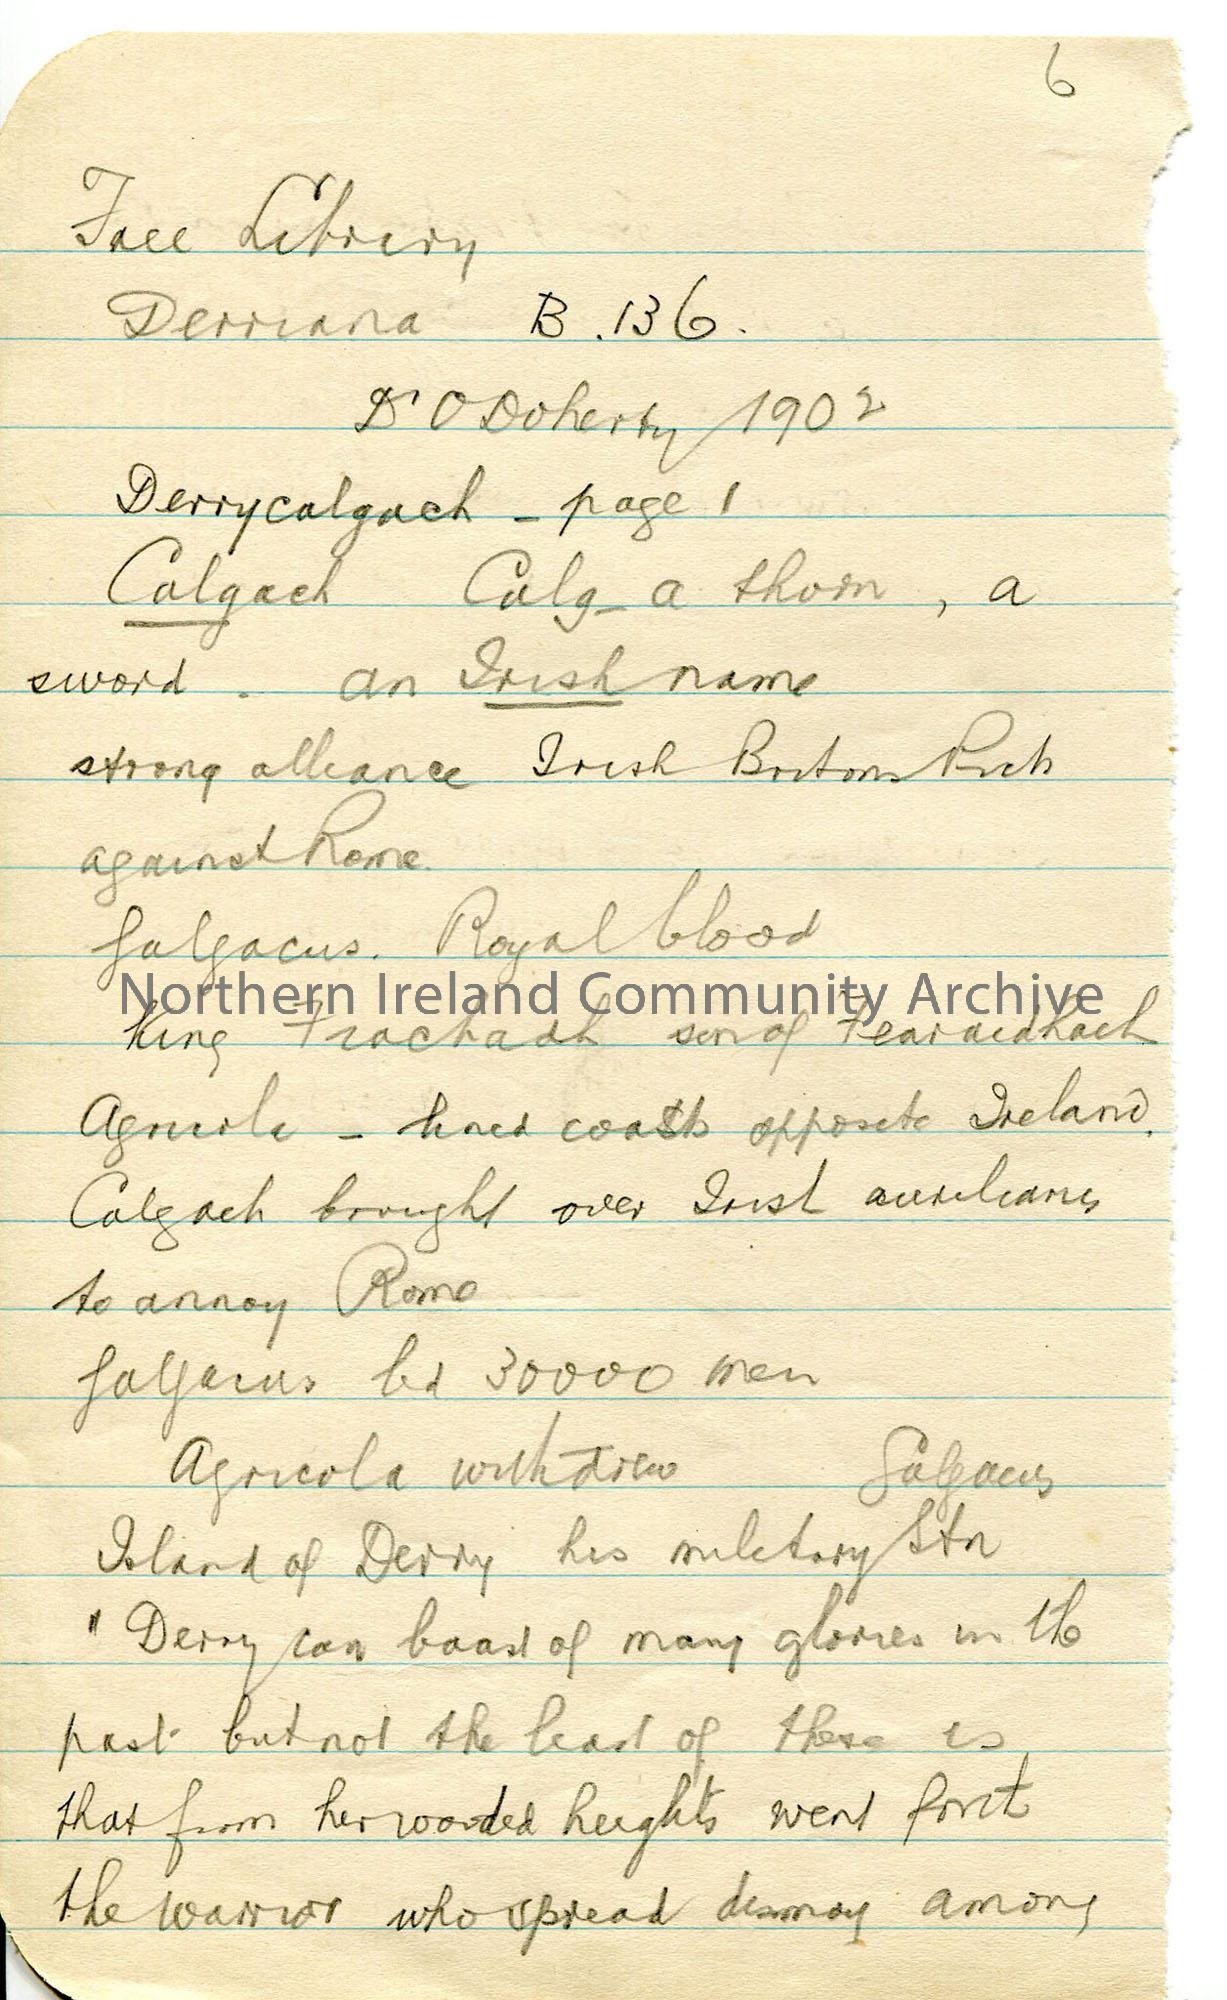 6
Free Library
Derriana B. 136.
Dr O Doherty 1902
Derrycalgach - page 1
Calgach Calg - a thorn, a
sword. an Irish name
strong alliance Irish Britons Picts
against Rome.
Galgacus. Royal blood
Northern Ireland Community Archive
King Fiachadh son of Fearaidhach
Agricola - lined coasts opposite Ireland.
Calgach brought over Irish auxiliaries
to annoy Rome
Galgacus led 30000 men
Agricola withdrew Galgacus
Island of Derry his military Stn
" Derry can boast of many glories in the
past but not the least of these is
that from her wooded heights went forth
the warrior who spread dismay among